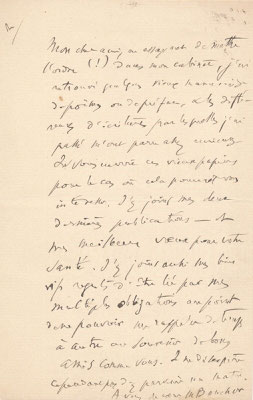 Mon cher ami, en essayant de mettre
l'ordre (!) dans mon cabinet, j'ai
retrouvé quelques vieux manuscrits
de poèmes ou de préfaces, et les diffé-
rentes écritures par lesquelles j'ai
passé m'ont paru assez curieuses.
Je vous envoie ces vieux papiers
pour le cas où cela pourrait vous
intéresser. J'y joins mes deux
dernières publications — et
mes meilleurs vœux pour votre
santé. J'y joins aussi mes bien
vifs regrets d'être lié par mes
multiples obligations au point
de ne pouvoir me rappeler de temps
à autre au souvenir de bons
amis comme vous. Je ne désespère
cependant pas d'y parvenir un
A vous